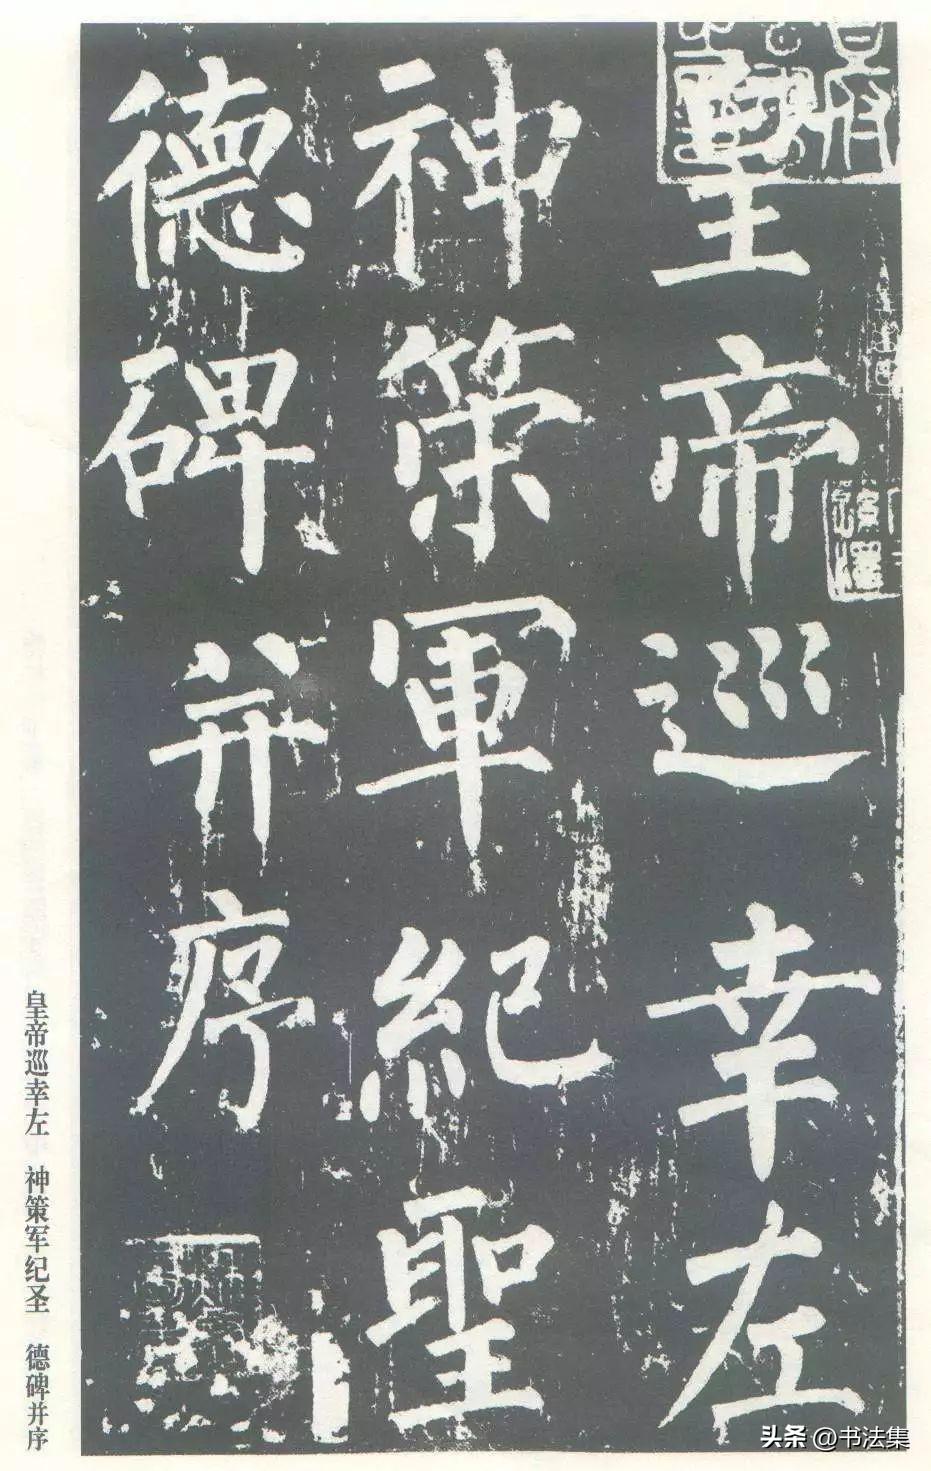 皇帝巡幸左
神策軍紀聖
德碑并序
皇帝巡幸左 神策军纪圣 德碑并序
头条 @书法集